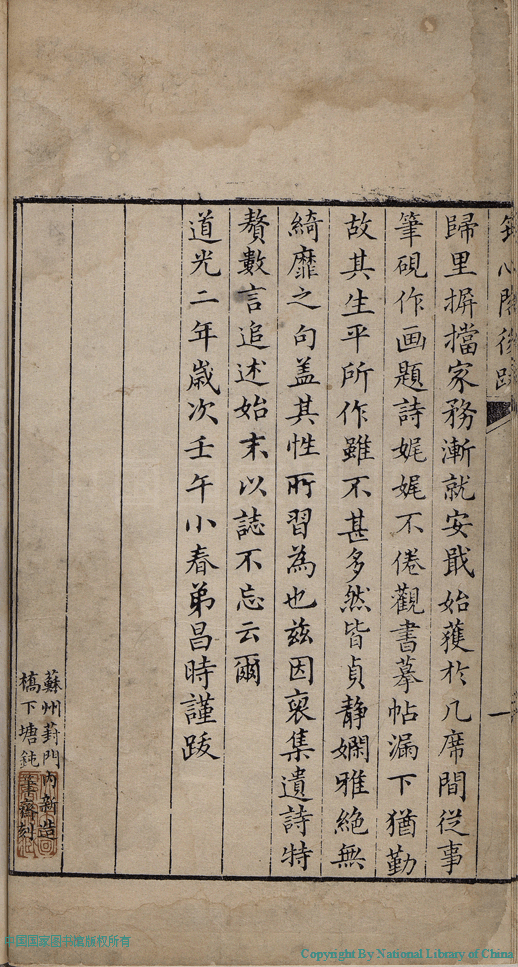 心閣後跋
一
歸里摒擋家務漸就安戢始獲於几席間從事
筆硯作画題詩娓娓不倦觀書摹帖漏下猶勤
故其生平所作雖不甚多然皆貞静嫻雅絶無
綺靡之句盖其性所習為也兹因裒集遺詩特
贅數言追述始末以誌不忘云爾
道光二年歲次壬午小春弟昌時謹跋
蘇州葑門内新造
橋下塘鈍筆齋刻
中国国家图书馆版权所有
Copyright By National Library of China